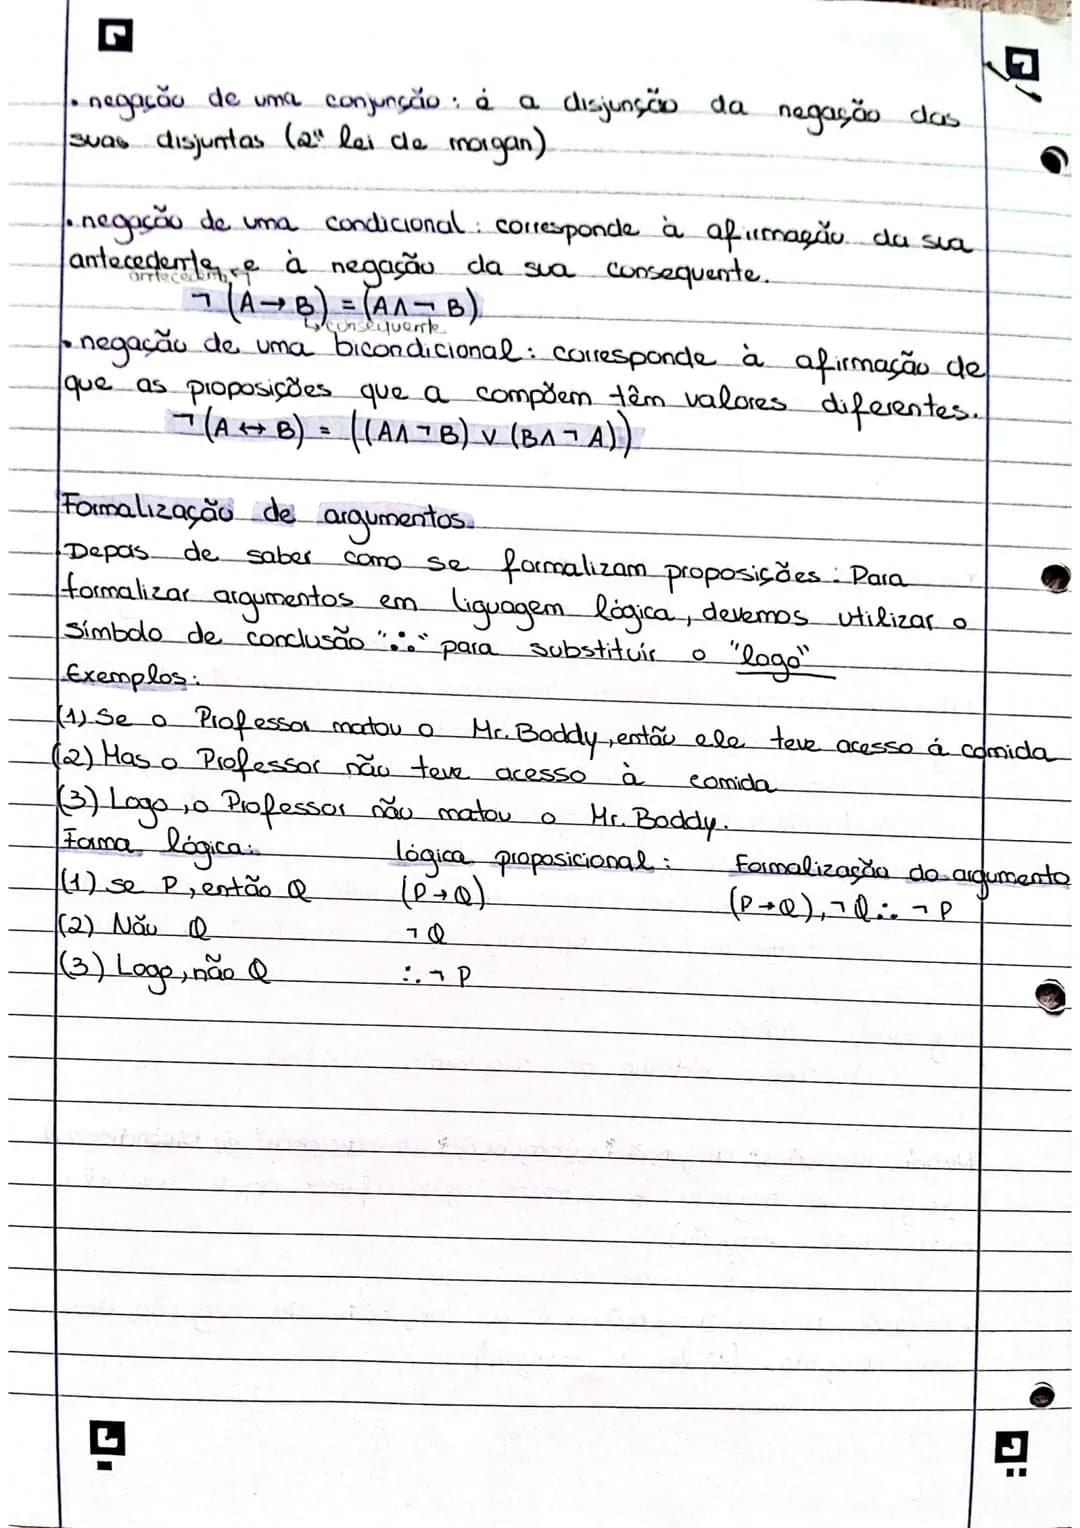 • negação de uma conjunção: é a disjunção da negação das
suas disjuntas (2ª lei de morgan)
• negação de uma condicional: corresponde à afirmação da sua
antecedente e à negação da sua consequente.
antecedente
¬(A→B) = (A∧¬B)
↳consequente
• negação de uma bicondicional: corresponde à afirmação de
que as proposições que a compõem têm valores diferentes.
¬(A↔B) = ((A∧¬B) ∨ (B∧¬A))
Formalização de argumentos
Depois de saber como se formalizam proposições: Para
formalizar argumentos em liguagem lógica, devemos utilizar o
símbolo de conclusão "∴" para substituir o "logo"
Exemplos:
(1) Se o Professor matou o Mr. Boddy, então ele teve acesso á comida
(2) Mas o Professor não teve acesso à comida
(3) Logo, o Professor não matou o Mr. Boddy.
Forma lógica: lógica proposicional: Formalização do argumento
(1) se P, então Q (P→Q) (P→Q), ¬Q ∴ ¬P
(2) Não Q ¬Q
(3) Logo, não Q ∴ ¬P